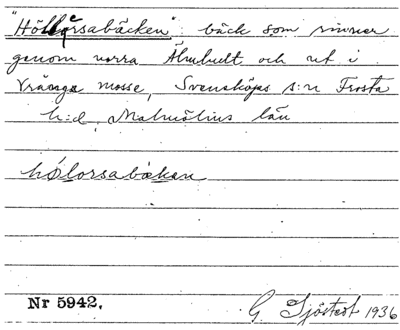 "Höllårsabäcken" bäck som rinner
genom norra Älmhult och ut i
Vränga mosse, Svensköps s:n Frosta
h:d, Malmöhus län
hölorsabækan
Nr 5942.
G. Sjöstedt 1936